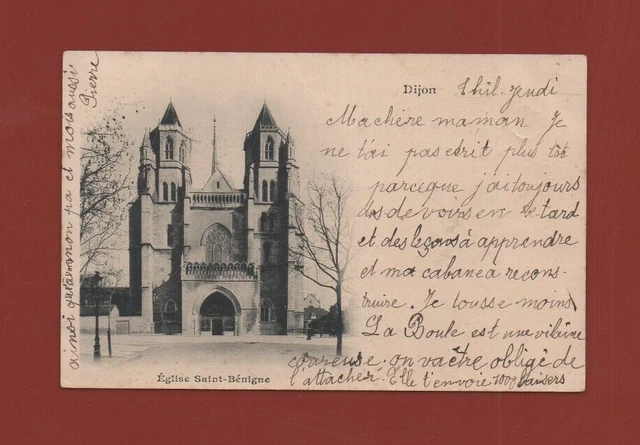 Dijon
Thil. Jeudi
Ma chère maman Je
ne t'ai pas ecrit plus tôt
parceque j'ai toujours
des devoirs en retard
et des leçons à apprendre
et ma cabane a recons-
truire. Je tousse moins
La Boule est une vilaine
coureuse. on va être obligé de
l'attacher. Elle t'envoie 1000 baisers
ainsi qu'a mon pa et moi aussi
Pierre
Église Saint-Bénigne